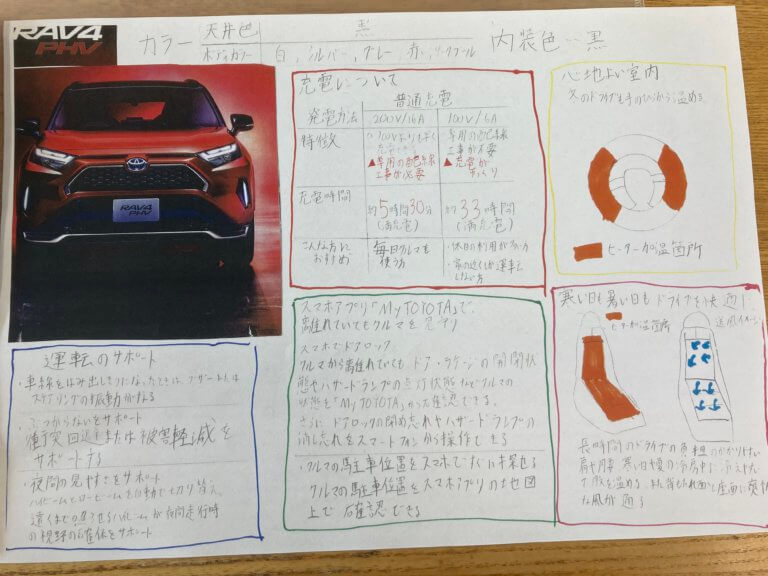 RAV4
PHV
カラー
天井色 黒
ボディカラー 白、シルバー、グレー、赤、
内装色…黒
RAV4
PHV
充電について
普通充電
発電方法 200V/16A 100V/6A
特徴
▲専用の配線
工事が必要
専用の配線
工事が不要
▲充電が
ゆっくり
充電時間
約5時間30分
(満充電)
約33時間
(満充電)
こんな方に
おすすめ
毎日クルマを
使う方
・休日の利用が多い方
・家の近くしか運転
しない方
心地よい室内
冬のドライブも手のひらから温める
ヒーター加温箇所
運転のサポート
・車線をはみ出しそうになったときは、ブザーまたは
ステアリングの振動が
ぶつからないをサポート
衝突回避または被害軽減を
サポートする
・夜間の見やすさをサポート
ハイビームとロービームを自動で切り替え、
遠くまで ハイビームが夜間走行時
の視野の確保をサポート
スマホアプリ「My TOYOTA」で、
離れていてもクルマを見守り
スマホでドアロック
クルマから離れていてもドア・ラゲージの開閉状
態やハザードランプの点灯状態などクルマの
状態を「My TOYOTA」から確認できる。
さらに、ドアロックの閉め忘れやハザードランプの
消し忘れをスマートフォンから操作できる
・クルマの駐車位置をスマホですぐに探せる
クルマの駐車位置をスマホアプリの地図
上で確認できる
寒い日も暑い日もドライブを快適に
ヒーター加温箇所
送風イメージ
長時間のドライブの負担のかかりやすい
肩や腰、寒い日や夏の冷房中に冷えやすい
を温める。また背もたれ面と座面に爽やか
な風が通る